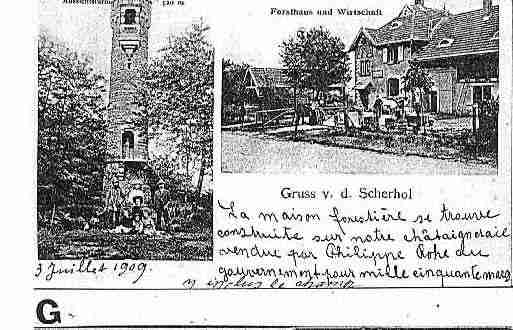 Aussichtsturm 520 m
Forsthaus und Wirtschaft
Gruss v. d. Scherhol
La maison forestière se trouve
construite sur notre châtaigneraie
vendue par Philippe Rohe au
gouvernement pour mille cinquante marcs
y inclus le champ
3 Juillet 1909.
G